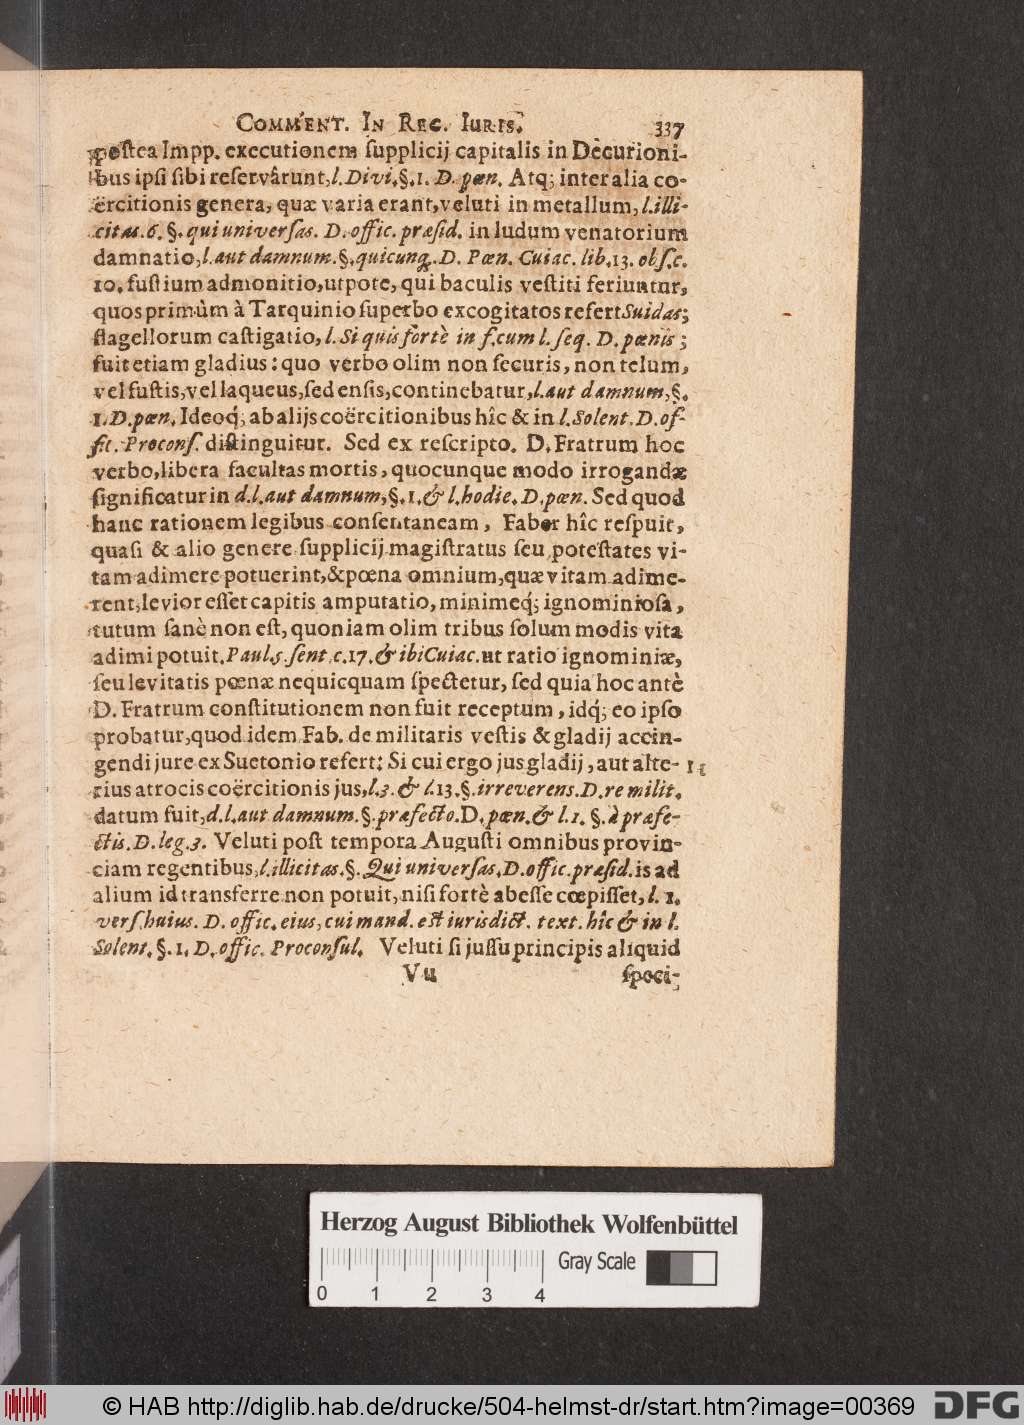 COMMENT. IN REG. IURIS. 337
postea Impp. executionem supplicij capitalis in Decurioni-
bus ipsi sibi reservârunt, l. Divi. §. 1. D. pœn. Atq; inter alia co-
ërcitionis genera, quæ varia erant, veluti in metallum, l. illi-
citas. 6. §. qui universas. D. offic. præsid. in ludum venatorium
damnatio, l. aut damnum. §. quicunq. D. Pœn. Cuiac. lib. 13. obs. c.
10. fustium admonitio, utpote, qui baculis vestiti feriuntur,
quos primùm à Tarquinio superbo excogitatos refert Suidas;
flagellorum castigatio, l. Si quis fortè in f. cum l. seq. D. pœnis;
fuit etiam gladius: quo verbo olim non securis, non telum,
vel fustis, vel laqueus, sed ensis, continebatur, l. aut damnum, §.
1. D. pœn. Ideoq́; ab alijs coërcitionibus hîc & in l. Solent. D. of-
fic. Procons. distinguitur. Sed ex rescripto. D. Fratrum hoc
verbo, libera facultas mortis, quocunque modo irrogandæ
significatur in d. l. aut damnum, §. 1. & l. hodie. D. pœn. Sed quod
hanc rationem legibus consentaneam, Faber hîc respuit,
quasi & alio genere supplicij magistratus seu potestates vi-
tam adimere potuerint, & pœna omnium, quæ vitam adime-
rent, levior esset capitis amputatio, minimeq́; ignominiosa,
tutum sanè non est, quoniam olim tribus solum modis vita
adimi potuit. Paul. 5. sent. c. 17. & ibi Cuiac. ut ratio ignominiæ,
seu levitatis pœnæ nequicquam spectetur, sed quia hoc antè
D. Fratrum constitutionem non fuit receptum, idq́; eo ipso
probatur, quod idem Fab. de militaris vestis & gladij accin-
gendi jure ex Suetonio refert: Si cui ergo jus gladij, aut alte-
rius atrocis coërcitionis jus, l. 3. & l. 13. §. irreverens. D. re milit.
datum fuit, d. l. aut damnum. §. præfecto. D. pœn. & l. 1. §. à præfe-
ctis. D. leg. 3. Veluti post tempora Augusti omnibus provin-
ciam regentibus, l. illicitas. §. Qui universas. D. offic. præsid. is ad
alium id transferre non potuit, nisi fortè abesse cœpisset, l. 1.
vers. huius. D. offic. eius, cui mand. est iurisdict. text. hîc & in l.
Solent. §. 1. D. offic. Proconsul. Veluti si jussu principis aliquid
Vu speci-
Herzog August Bibliothek Wolfenbüttel
Gray Scale
0 1 2 3 4
© HAB http://diglib.hab.de/drucke/504-helmst-dr/start.htm?image=00369 DFG